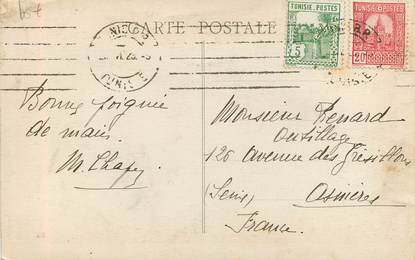 CARTE POSTALE
TUNISIE.POSTES
5
TUNISIE.POSTES
20
Bonne poignée
de main.
M. Chapuy
Monsieur Renard
Outillage
126 avenue des Grésillons
(Seine) Asnières
France.